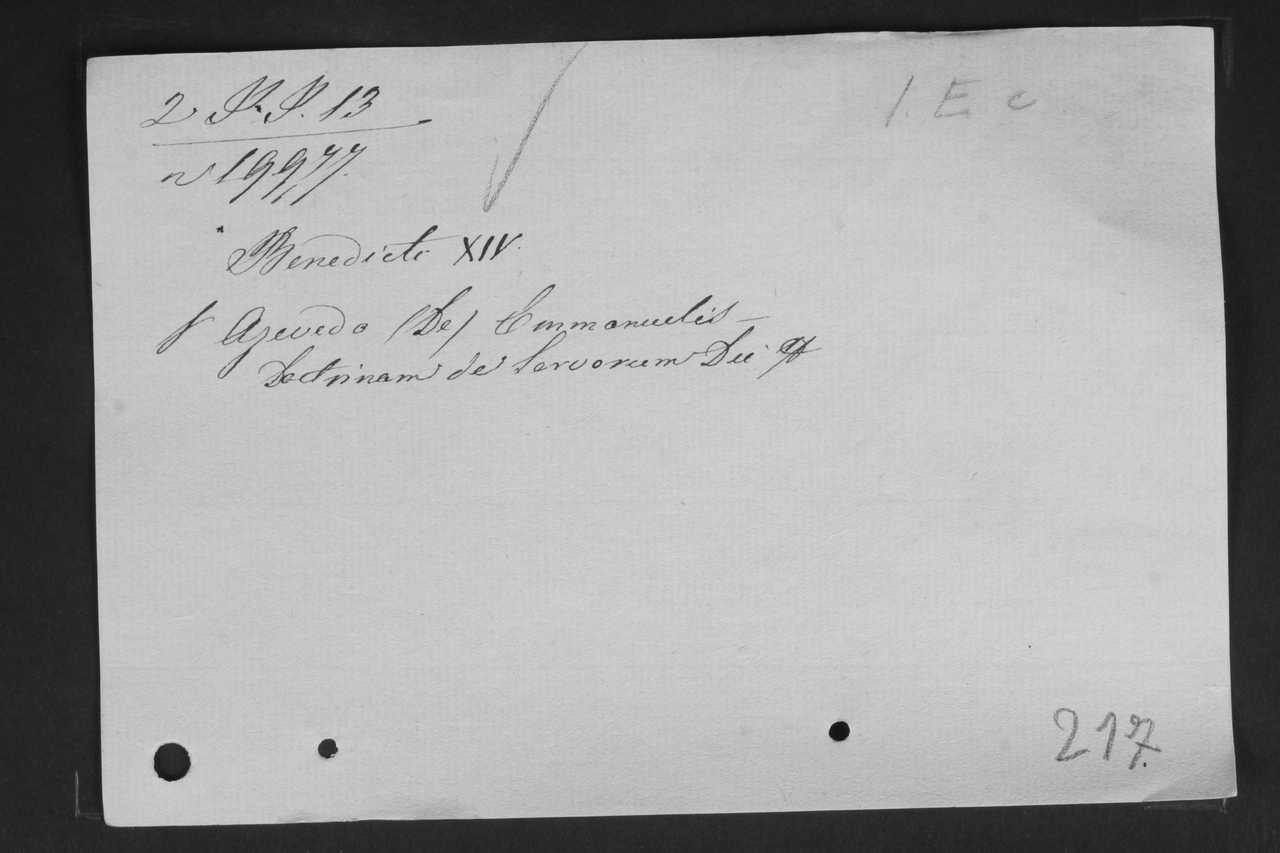 2 P. P. 13
1. E c
n 19977.
Benedicti XIV.
f Azevedo (De) Emmanuelis –
Doctrinam de Servorum Dei
217.